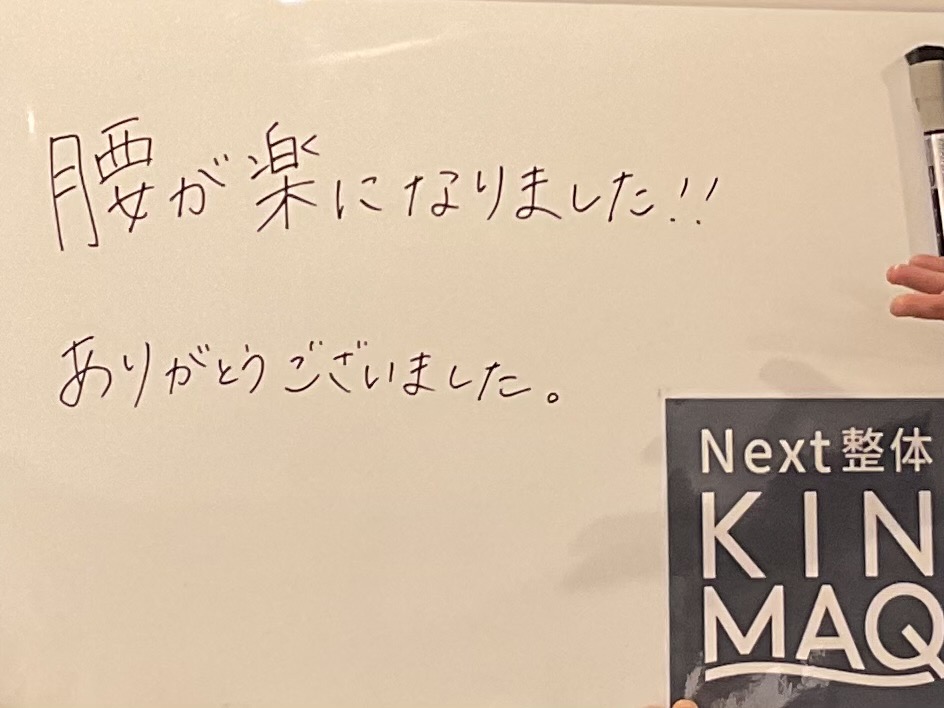 腰が楽になりました!!
ありがとうございました。
Next整体
KIN
MAQ